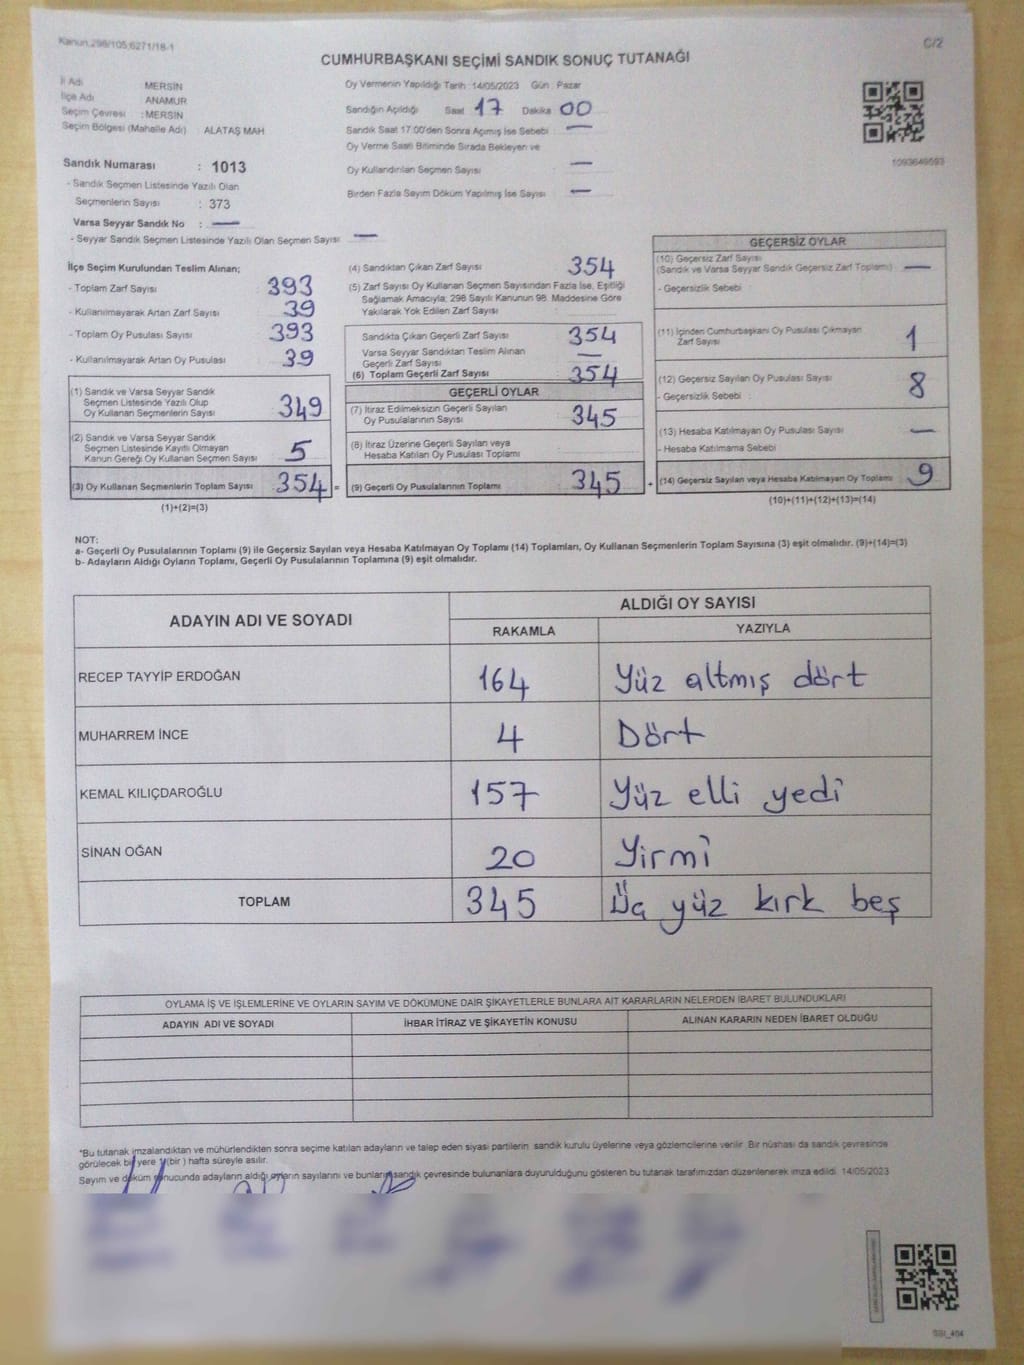 Kanun,298/105,6271/18-1
C/2
CUMHURBAŞKANI SEÇİMİ SANDIK SONUÇ TUTANAĞI
İl Adı MERSİN
İlçe Adı ANAMUR
Seçim Çevresi : MERSİN
Seçim Bölgesi (Mahalle Adı) : ALATAŞ MAH
Oy Vermenin Yapıldığı Tarih : 14/05/2023 Gün : Pazar
Sandığın Açıldığı Saat 17 Dakika 00
Sandık Saat 17:00'den Sonra Açımış İse Sebebi : —
Oy Verme Saati Bitiminde Sırada Bekleyen ve
Oy Kullandırılan Seçmen Sayısı : —
Birden Fazla Sayım Döküm Yapılmış İse Sayısı : —
1093649593
Sandık Numarası : 1013
- Sandık Seçmen Listesinde Yazılı Olan
Seçmenlerin Sayısı : 373
Varsa Seyyar Sandık No : —
- Seyyar Sandık Seçmen Listesinde Yazılı Olan Seçmen Sayısı : —
İlçe Seçim Kurulundan Teslim Alınan;
- Toplam Zarf Sayısı : 393
- Kullanılmayarak Artan Zarf Sayısı : 39
- Toplam Oy Pusulası Sayısı : 393
- Kullanılmayarak Artan Oy Pusulası : 39
(1) Sandık ve Varsa Seyyar Sandık
Seçmen Listesinde Yazılı Olup
Oy Kullanan Seçmenlerin Sayısı : 349
(2) Sandık ve Varsa Seyyar Sandık
Seçmen Listesinde Kayıtlı Olmayan
Kanun Gereği Oy Kullanan Seçmen Sayısı : 5
(3) Oy Kullanan Seçmenlerin Toplam Sayısı : 354 =
(1)+(2)=(3)
(4) Sandıktan Çıkan Zarf Sayısı : 354
(5) Zarf Sayısı Oy Kullanan Seçmen Sayısından Fazla İse, Eşitliği
Sağlamak Amacıyla; 298 Sayılı Kanunun 98. Maddesine Göre
Yakılarak Yok Edilen Zarf Sayısı :
Sandıkta Çıkan Geçerli Zarf Sayısı : 354
Varsa Seyyar Sandıktan Teslim Alınan
Geçerli Zarf Sayısı : —
(6) Toplam Geçerli Zarf Sayısı : 354
GEÇERLİ OYLAR
(7) İtiraz Edilmeksizin Geçerli Sayılan
Oy Pusulalarının Sayısı : 345
(8) İtiraz Üzerine Geçerli Sayılan veya
Hesaba Katılan Oy Pusulası Toplamı :
(9) Geçerli Oy Pusulalarının Toplamı : 345 +
GEÇERSİZ OYLAR
(10) Geçersiz Zarf Sayısı
(Sandık ve Varsa Seyyar Sandık Geçersiz Zarf Toplamı) : —
- Geçersizlik Sebebi :
(11) İçinden Cumhurbaşkanı Oy Pusulası Çıkmayan
Zarf Sayısı : 1
(12) Geçersiz Sayılan Oy Pusulası Sayısı : 8
- Geçersizlik Sebebi :
(13) Hesaba Katılmayan Oy Pusulası Sayısı : —
- Hesaba Katılmama Sebebi :
(14) Geçersiz Sayılan veya Hesaba Katılmayan Oy Toplamı : 9
(10)+(11)+(12)+(13)=(14)
NOT:
a- Geçerli Oy Pusulalarının Toplamı (9) ile Geçersiz Sayılan veya Hesaba Katılmayan Oy Toplamı (14) Toplamları, Oy Kullanan Seçmenlerin Toplam Sayısına (3) eşit olmalıdır. (9)+(14)=(3)
b- Adayların Aldığı Oyların Toplamı, Geçerli Oy Pusulalarının Toplamına (9) eşit olmalıdır.
ADAYIN ADI VE SOYADI ALDIĞI OY SAYISI
RAKAMLA YAZIYLA
RECEP TAYYİP ERDOĞAN 164 Yüz altmış dört
MUHARREM İNCE 4 Dört
KEMAL KILIÇDAROĞLU 157 Yüz elli yedi
SİNAN OĞAN 20 Yirmi
TOPLAM 345 Üç yüz kırk beş
OYLAMA İŞ VE İŞLEMLERİNE VE OYLARIN SAYIM VE DÖKÜMÜNE DAİR ŞİKAYETLERLE BUNLARA AİT KARARLARIN NELERDEN İBARET BULUNDUKLARI
ADAYIN ADI VE SOYADI İHBAR İTİRAZ VE ŞİKAYETİN KONUSU ALINAN KARARIN NEDEN İBARET OLDUĞU
*Bu tutanak imzalandıktan ve mühürlendikten sonra seçime katılan adayların ve talep eden siyasi partilerin sandık kurulu üyelerine veya gözlemcilerine verilir. Bir nüshası da sandık çevresinde
görülecek bir yere 1 (bir ) hafta süreyle asılır.
Sayım ve döküm sonucunda adayların aldığı oyların sayılarını ve bunların sandık çevresinde bulunanlara duyurulduğunu gösteren bu tutanak tarafımızdan düzenlenerek imza edildi. 14/05/2023
SSI_404